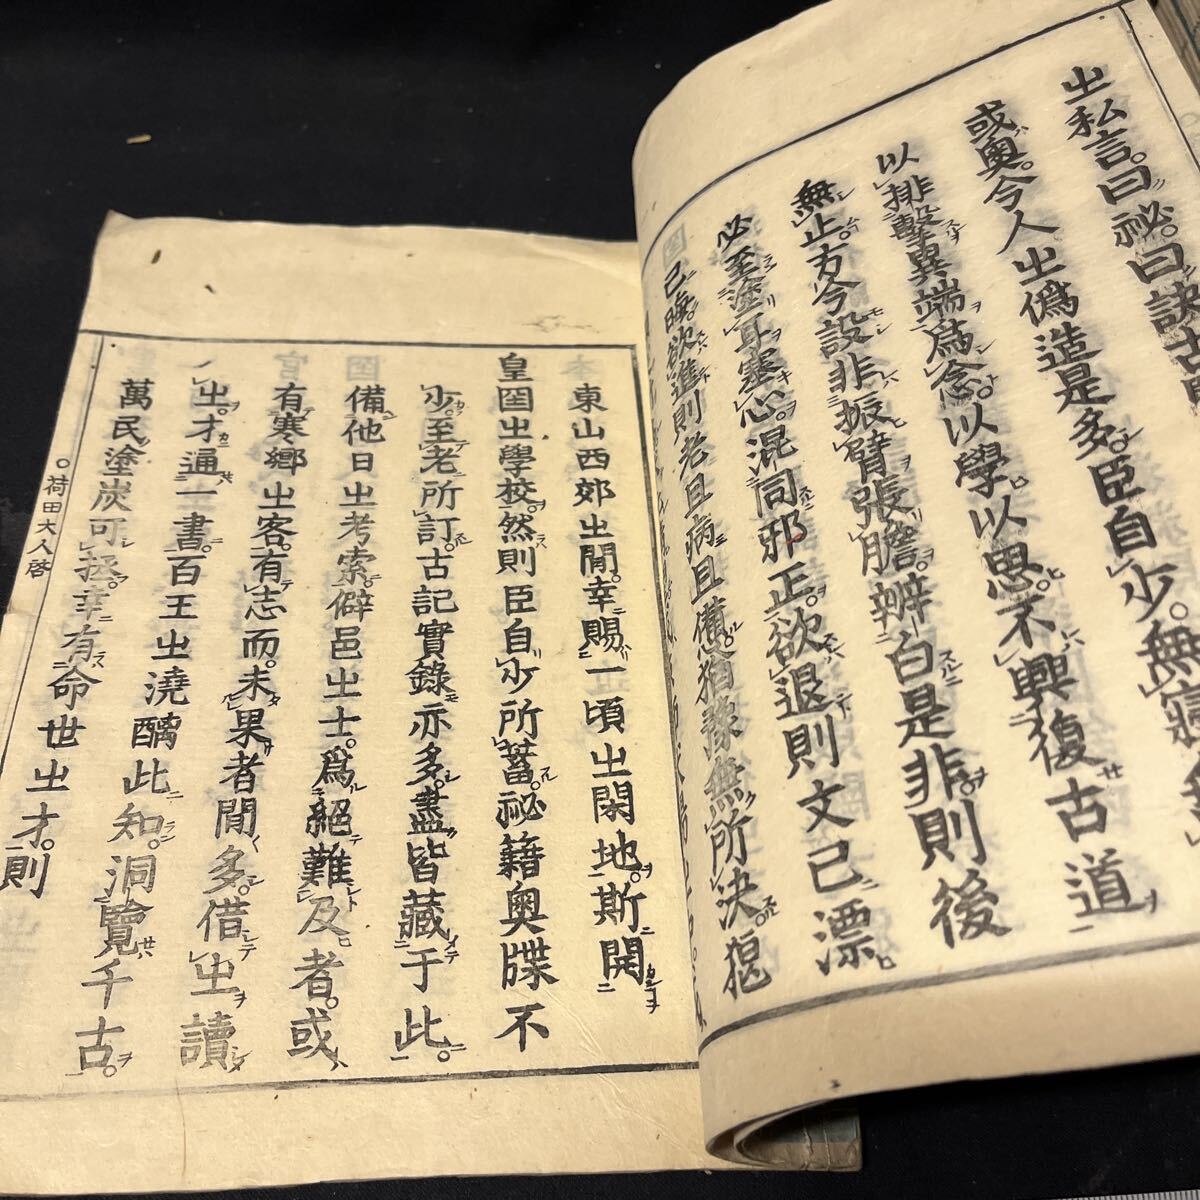 㞢私言。曰祕。曰訣古
或奥。今人㞢僞造是多。臣自少。無寢無
以排撃異端爲念。以學以思。不興復古道
無止。方今設非振臂張膽。辨白是非。則後
必至塗耳塞心。混同邪正。欲退則文已漂
已晦。欲進則老且病且憊。猶豫無所決。狼
東山西郊㞢閒。幸賜一頃㞢閑地。斯開
皇圀㞢學校。然則臣自少所蓄。祕籍奥牒不
少。至老所訂。古記實錄亦多。盡皆藏于此。
備他日㞢考索。僻邑㞢士。爲絕難及者。或
有寒鄉㞢客。有志而未果者。閒多。借㞢讀
㞢。才通一書。百王㞢澆醨此知。洞覽千古。
萬民塗炭可拯。幸有命世㞢才。則
○荷田大人啓